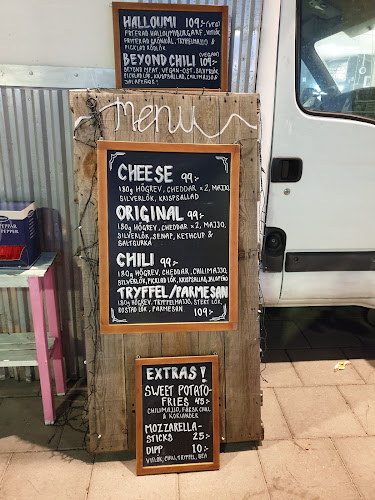 HALLOUMI 109:- (VEG)
FRITERAD HALLOUMIBURGARE, VITLÖK,
FRITERAD GRÖNKÅL, TRYFFELMAJO &
PICKLAD RÖDLÖK
BEYOND CHILI 109:- (VEGAN)
BEYOND MEAT, VEGAN-OST, SALTGURKA,
PICKLAD LÖK, KRISPSALLAD, CHILIMAJJO &
JALAPEÑO!
menu
CHEESE 99:-
180g HÖGREV, CHEDDAR ×2, MAJJO,
SILVERLÖK, KRISPSALLAD
ORIGINAL 99:-
180g HÖGREV, CHEDDAR ×2, MAJJO,
SILVERLÖK, SENAP, KETHCUP &
SALTGURKA
CHILI 99:-
180g HÖGREV, CHEDDAR, CHILIMAJJO,
SILVERLÖK, PICKLAD LÖK, KRISPSALLAD, JALAPEÑO
TRYFFEL/PARMESAN
180g HÖGREV, TRYFFELMAJJO, STEKT LÖK,
ROSTAD LÖK, PARMESAN 109:-
EXTRAS!
SWEET POTATO-
FRIES 45:-
CHILIMAJJO, FÄRSK CHILI
& KORIANDER
MOZZARELLA-
STICKS 25:-
DIPP 10:-
VITLÖK, CHILI, TRYFFEL, BEA
PEPPAR
PEPPER